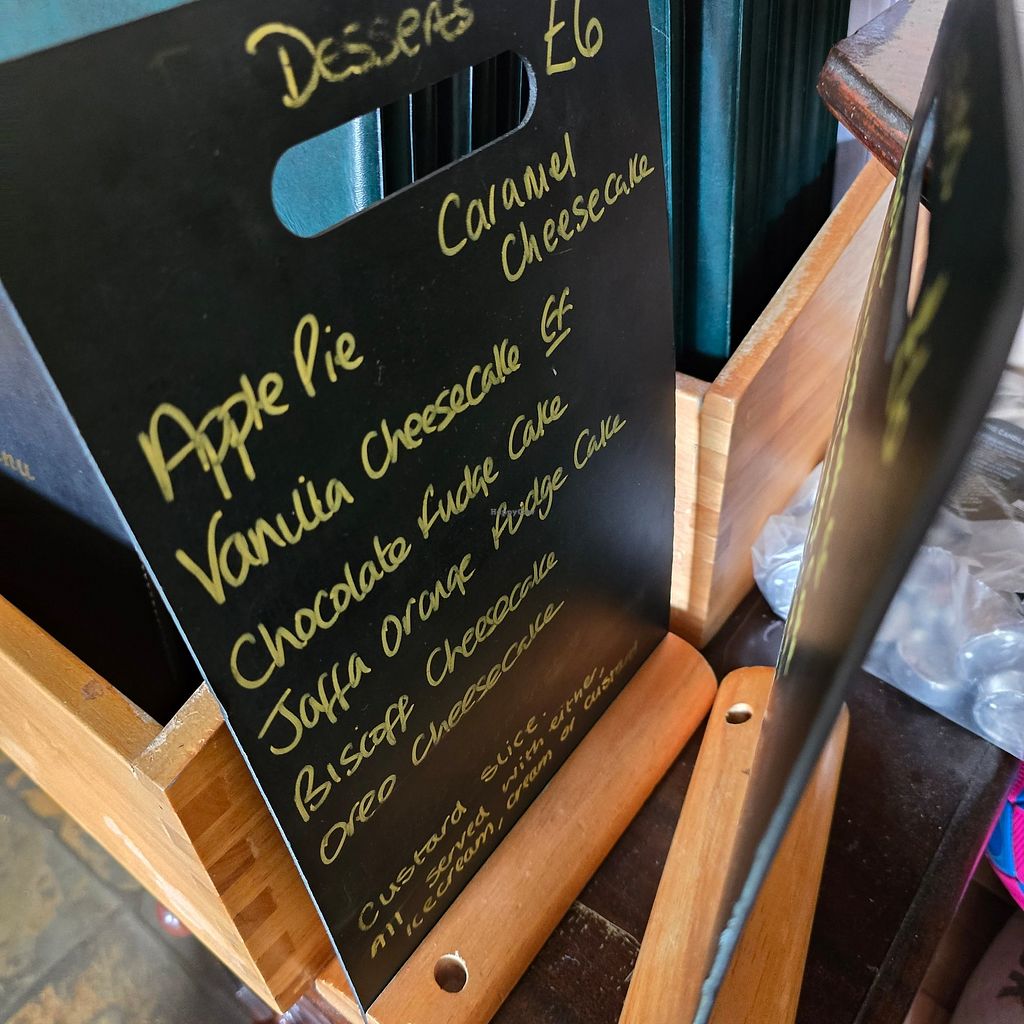 Desserts £6
Caramel
Cheesecake
Apple Pie
Vanilla Cheesecake Gf
Chocolate fudge Cake
Jaffa Orange fudge Cake
Biscoff Cheesecake
Oreo Cheesecake
Custard Slice.
All served with either,
icecream, cream or custard
nu